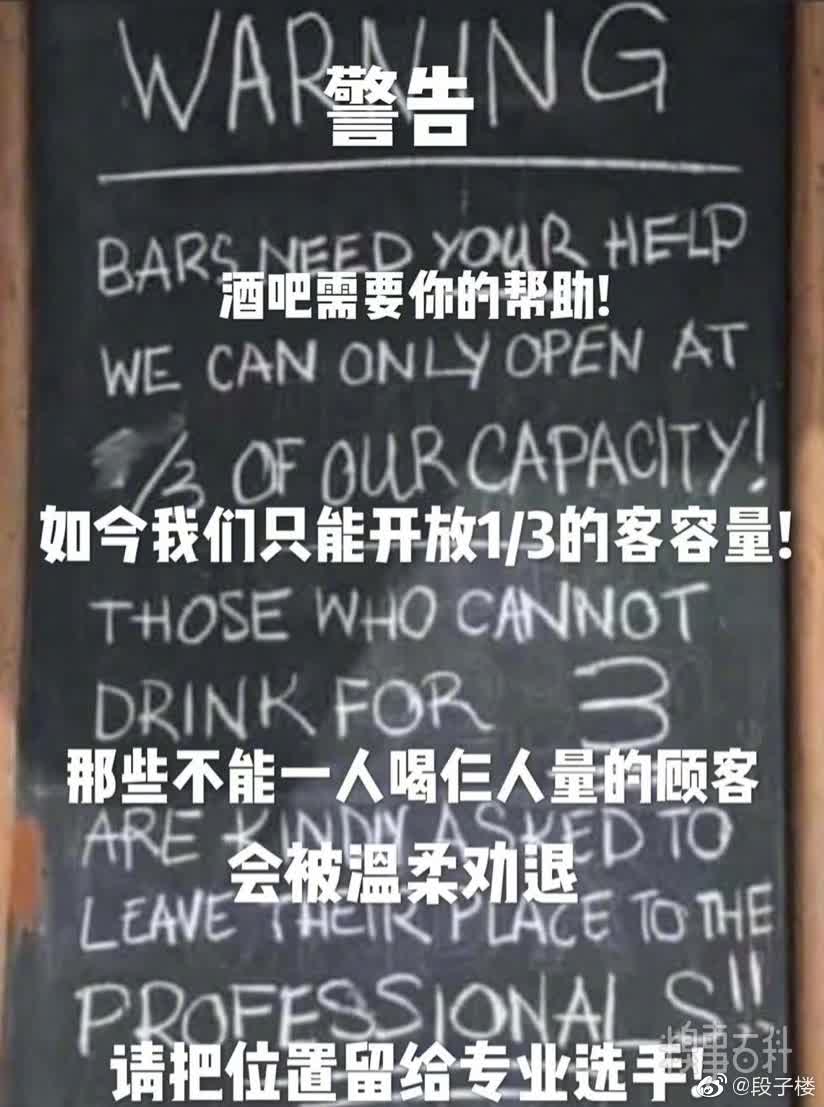 WARNING
警告
BARS NEED YOUR HELP
酒吧需要你的帮助!
WE CAN ONLY OPEN AT
1/3 OF OUR CAPACITY!
如今我们只能开放1/3的客容量!
THOSE WHO CANNOT
DRINK FOR 3
那些不能一人喝仨人量的顾客
ARE KINDLY ASKED TO
会被温柔劝退
LEAVE THEIR PLACE TO THE
PROFESSIONALS!!
请把位置留给专业选手!
糗事百科
@段子楼